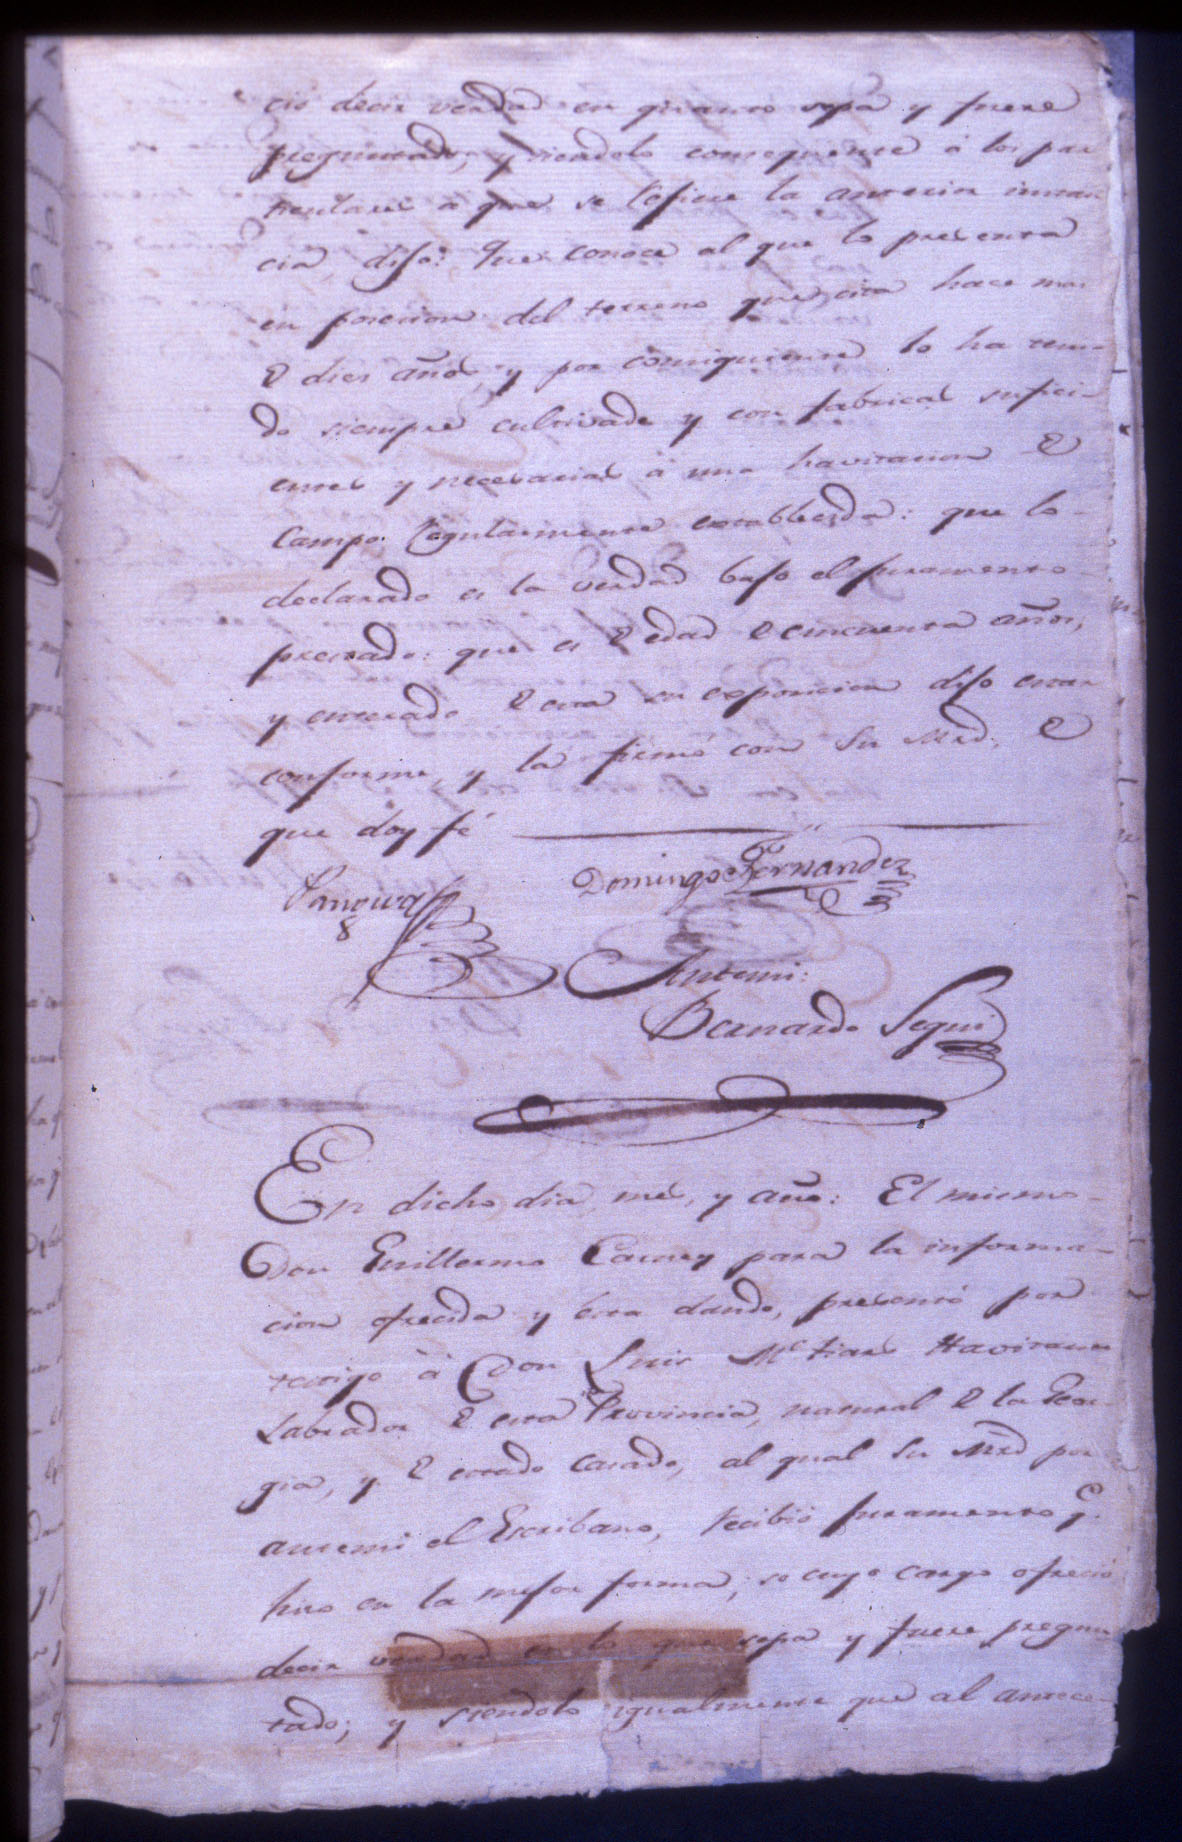 cio decir verdad en quanto sepa y fuere
preguntado, y siendolo consequente á los par
ticulares á que se refiere la anterior instan
cia, dijo: Que conoce al que lo presenta
en posecion del terreno que cita hace mas
de dies años, y por consiguiente lo ha teni-
do siempre cultivado y con fabricas sufici-
entes y necesarias á una havitacion de
Campo regularmente establecida: que lo
declarado es la verdad bajo el juramento
prestado: que es de edad de cincuenta años,
y enterado de esta su exposicion dijo estar
conforme, y la firmó con Su Mrd. de
que doy fé
Domingo Fernandez
Antemi:
Bernardo Segui
En dicho dia, mes, y año: El mismo
Don Guillermo para la informa-
cion ofrecida y esta dando, presentó por
testigo á Don Luis Havitante
Labrador de esta Provincia, natural de la Geor
gia, y de estado casado, al qual Su Mrd por
antemi el Escribano, recibió juramento q.
hizo en la mejor forma, so cuyo cargo ofreció
decir verdad en lo que sepa y fuere pregun
tado; y siendolo igualmente que al antece-